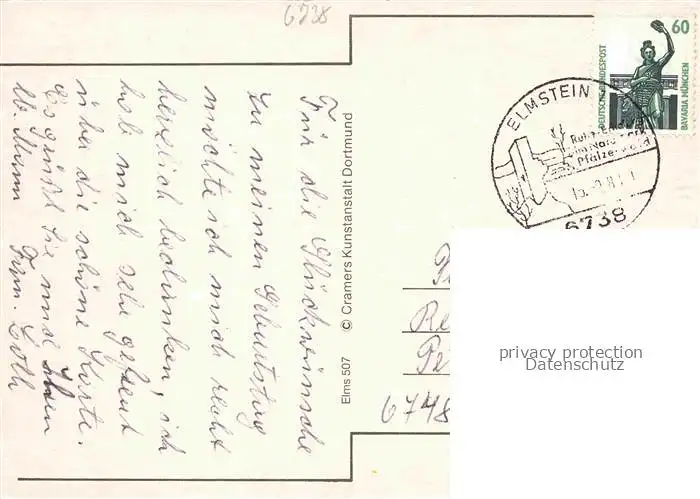 6738
Für die Glückwünsche
zu meinen Geburtstag
möchte ich mich recht
herzlich bedanken, ich
hab mich sehr gefreut
über die schöne Karte.
Es grüßt Sie und Ihren
lb. Mann Fam.
Elms 507 © Cramers Kunstanstalt Dortmund
60
DEUTSCHE BUNDESPOST
BAVARIA MÜNCHEN
ELMSTEIN
im Naturpark
Pfälzerwald
6738
6748
privacy protection
Datenschutz